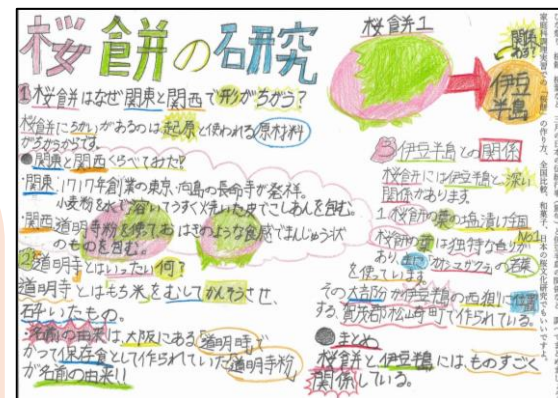 桜餅の研究
①桜餅はなぜ関東と関西で形がちがう?
桜餅にちがいがあるのは起原と使われる原材料
がちがうからです。
●関東と関西くらべてみた!
・関東 1717年創業の東京・向島の長命寺が発祥。
小麦粉を水で溶いてうすく焼いた皮でこしあんを包む。
・関西 道明寺粉を
のものを包む。
②道明寺とはいったい何?
道明寺とはもち米をむしてかんそうさせ、
石干いたもの。
・名前の由来は、大阪にある「道明寺」で
かつて保存食として作られていた道明寺粉
が名前の由来!!
桜餅1
関係
ある?
伊豆
半島
③伊豆半島との関係
桜餅には伊豆半島と深い
関係があります。
1桜餅の葉の塩漬け
No.1
桜餅の葉は独特な香りが
あり、主にオオシマザクラの若葉
を使っています。
その大部分が伊豆半島の西側に位置
する、賀茂郡松崎町で作られている。
●まとめ
桜餅と伊豆半島には、ものすごく
関係している。